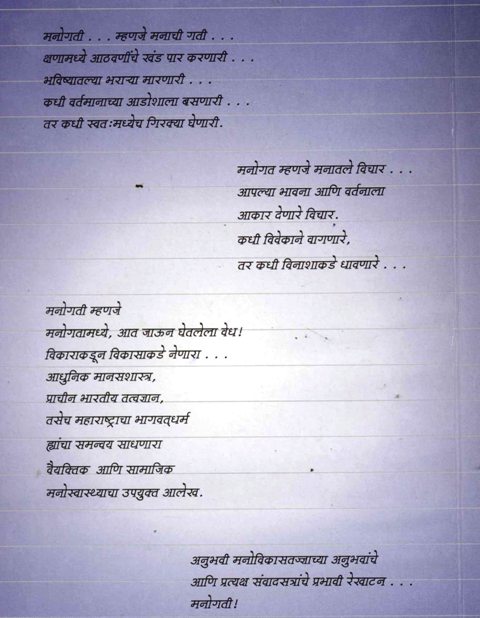 मनोगती . . . म्हणजे मनाची गती . . .
क्षणामध्ये आठवणींचे खंड पार करणारी . . .
भविष्यातल्या भराऱ्या मारणारी . . .
कधी वर्तमानाच्या आडोशाला बसणारी . . .
तर कधी स्वतःमध्येच गिरक्या घेणारी.
मनोगत म्हणजे मनातले विचार . . .
आपल्या भावना आणि वर्तनाला
आकार देणारे विचार.
कधी विवेकाने वागणारे,
तर कधी विनाशाकडे धावणारे . . .
मनोगती म्हणजे
मनोगतामध्ये, आत जाऊन घेतलेला वेध!
विकाराकडून विकासाकडे नेणारा . . .
आधुनिक मानसशास्त्र,
प्राचीन भारतीय तत्वज्ञान,
तसेच महाराष्ट्राचा भागवत्‌धर्म
ह्यांचा समन्वय साधणारा
वैयक्तिक आणि सामाजिक
मनोस्वास्थ्याचा उपयुक्त आलेख.
अनुभवी मनोविकासतज्ज्ञाच्या अनुभवांचे
आणि प्रत्यक्ष संवादसत्रांचे प्रभावी रेखाटन . . .
मनोगती!